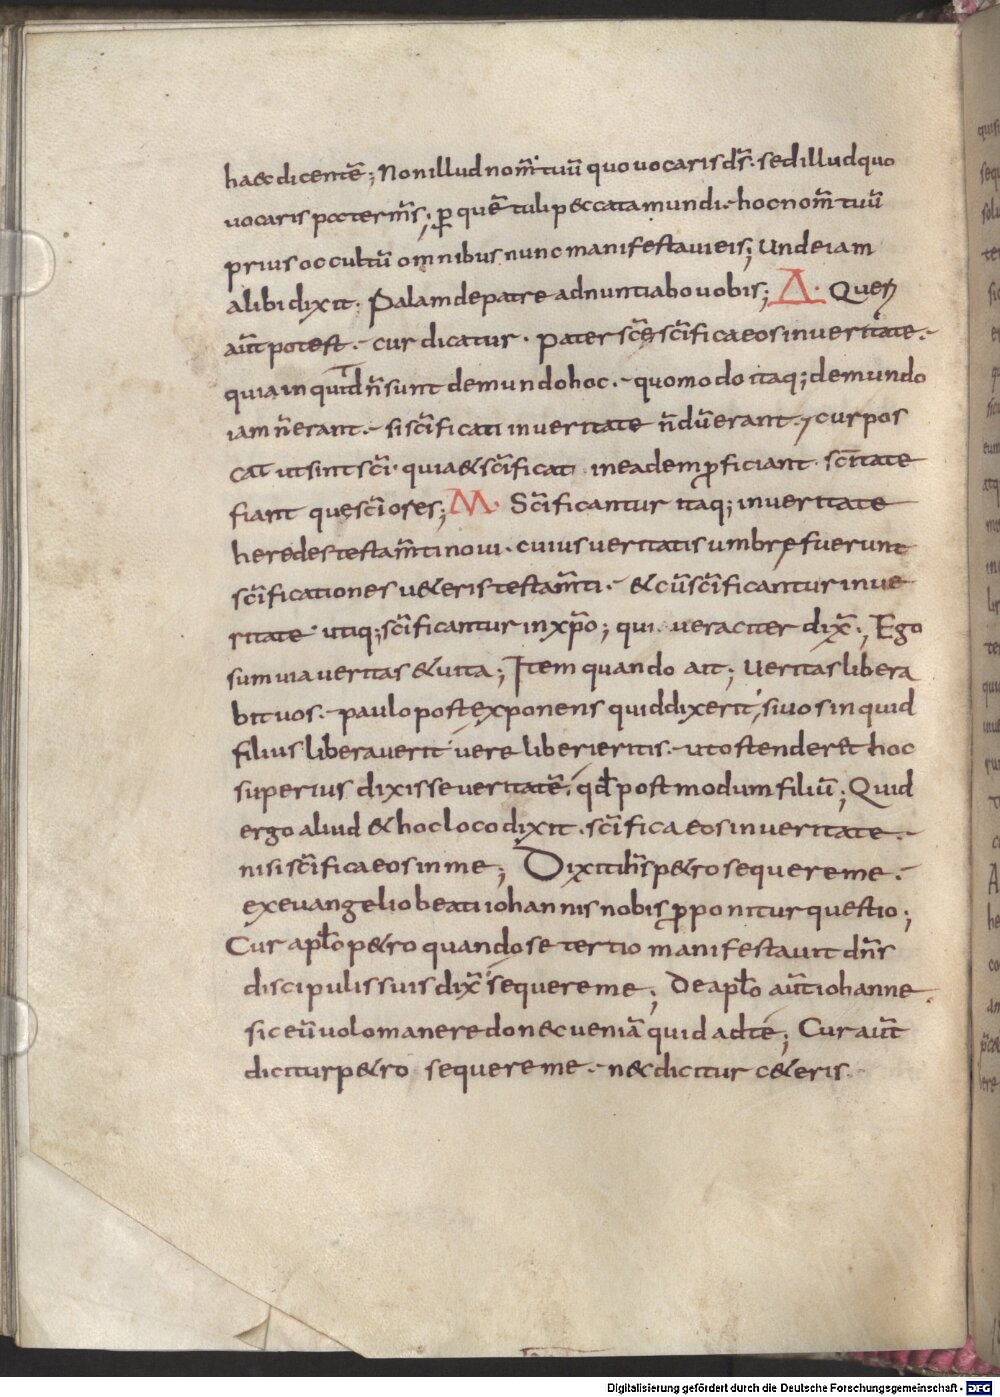 haec dicentē; Non illud nom̄ tuū quo vocaris d̄s· sed illud quo
vocaris pater m̄s; ꝑ quē tuli peccata mundi· hoc nom̄ tuū
prius occultū omnibus nunc manifestavi eis; Unde iam
alibi dixit· Palam de patre adnuntiabo vobis; Δ· Queri
aūt potest· cur dicatur· pater sc̄e sc̄ifica eos in veritate·
quia inquid n̄ sunt de mundo hoc· quomodo itaq; de mundo
iam n̄ erant· si sc̄ificati in veritate n̄dū erant· cur pos
cat ut sint sc̄i· quia & sc̄ificati in eadem ꝓficiant sc̄itate
fiantque sc̄iores; M· Sc̄ificantur itaq; in veritate
heredes testam̄ti novi· cuius veritatis umbrę fuerunt
sc̄ificationes v&eris testam̄ti· & cū sc̄ificantur in ve
ritate utiq; sc̄ificantur in xp̄o; qui veraciter dix̄; Ego
sum via veritas & vita; Item quando ait; Veritas libera
bit vos· paulo post exponens quid dixerit, si vos inquid
filius liberaverit vere liberi eritis· ut ostender& hoc
superius dixisse veritatē, qđ postmodum filiū; Quid
ergo aliud & hoc loco dixit· sc̄ifica eos in veritate·
nisi sc̄ifica eos in me; Dixit ih̄s p&ro sequere me·
ex evangelio beati iohannis nobis ꝓponitur questio;
Cur apl̄o p&ro quando se tertio manifestavit dn̄s
discipulis suis dix̄ sequere me; De apl̄o aūt iohanne·
sic eū volo manere donec veniā quid ad te; Cur aūt
dicitur p&ro sequere me· nec dicitur c&eris·
Digitalisierung gefördert durch die Deutsche Forschungsgemeinschaft - DFG